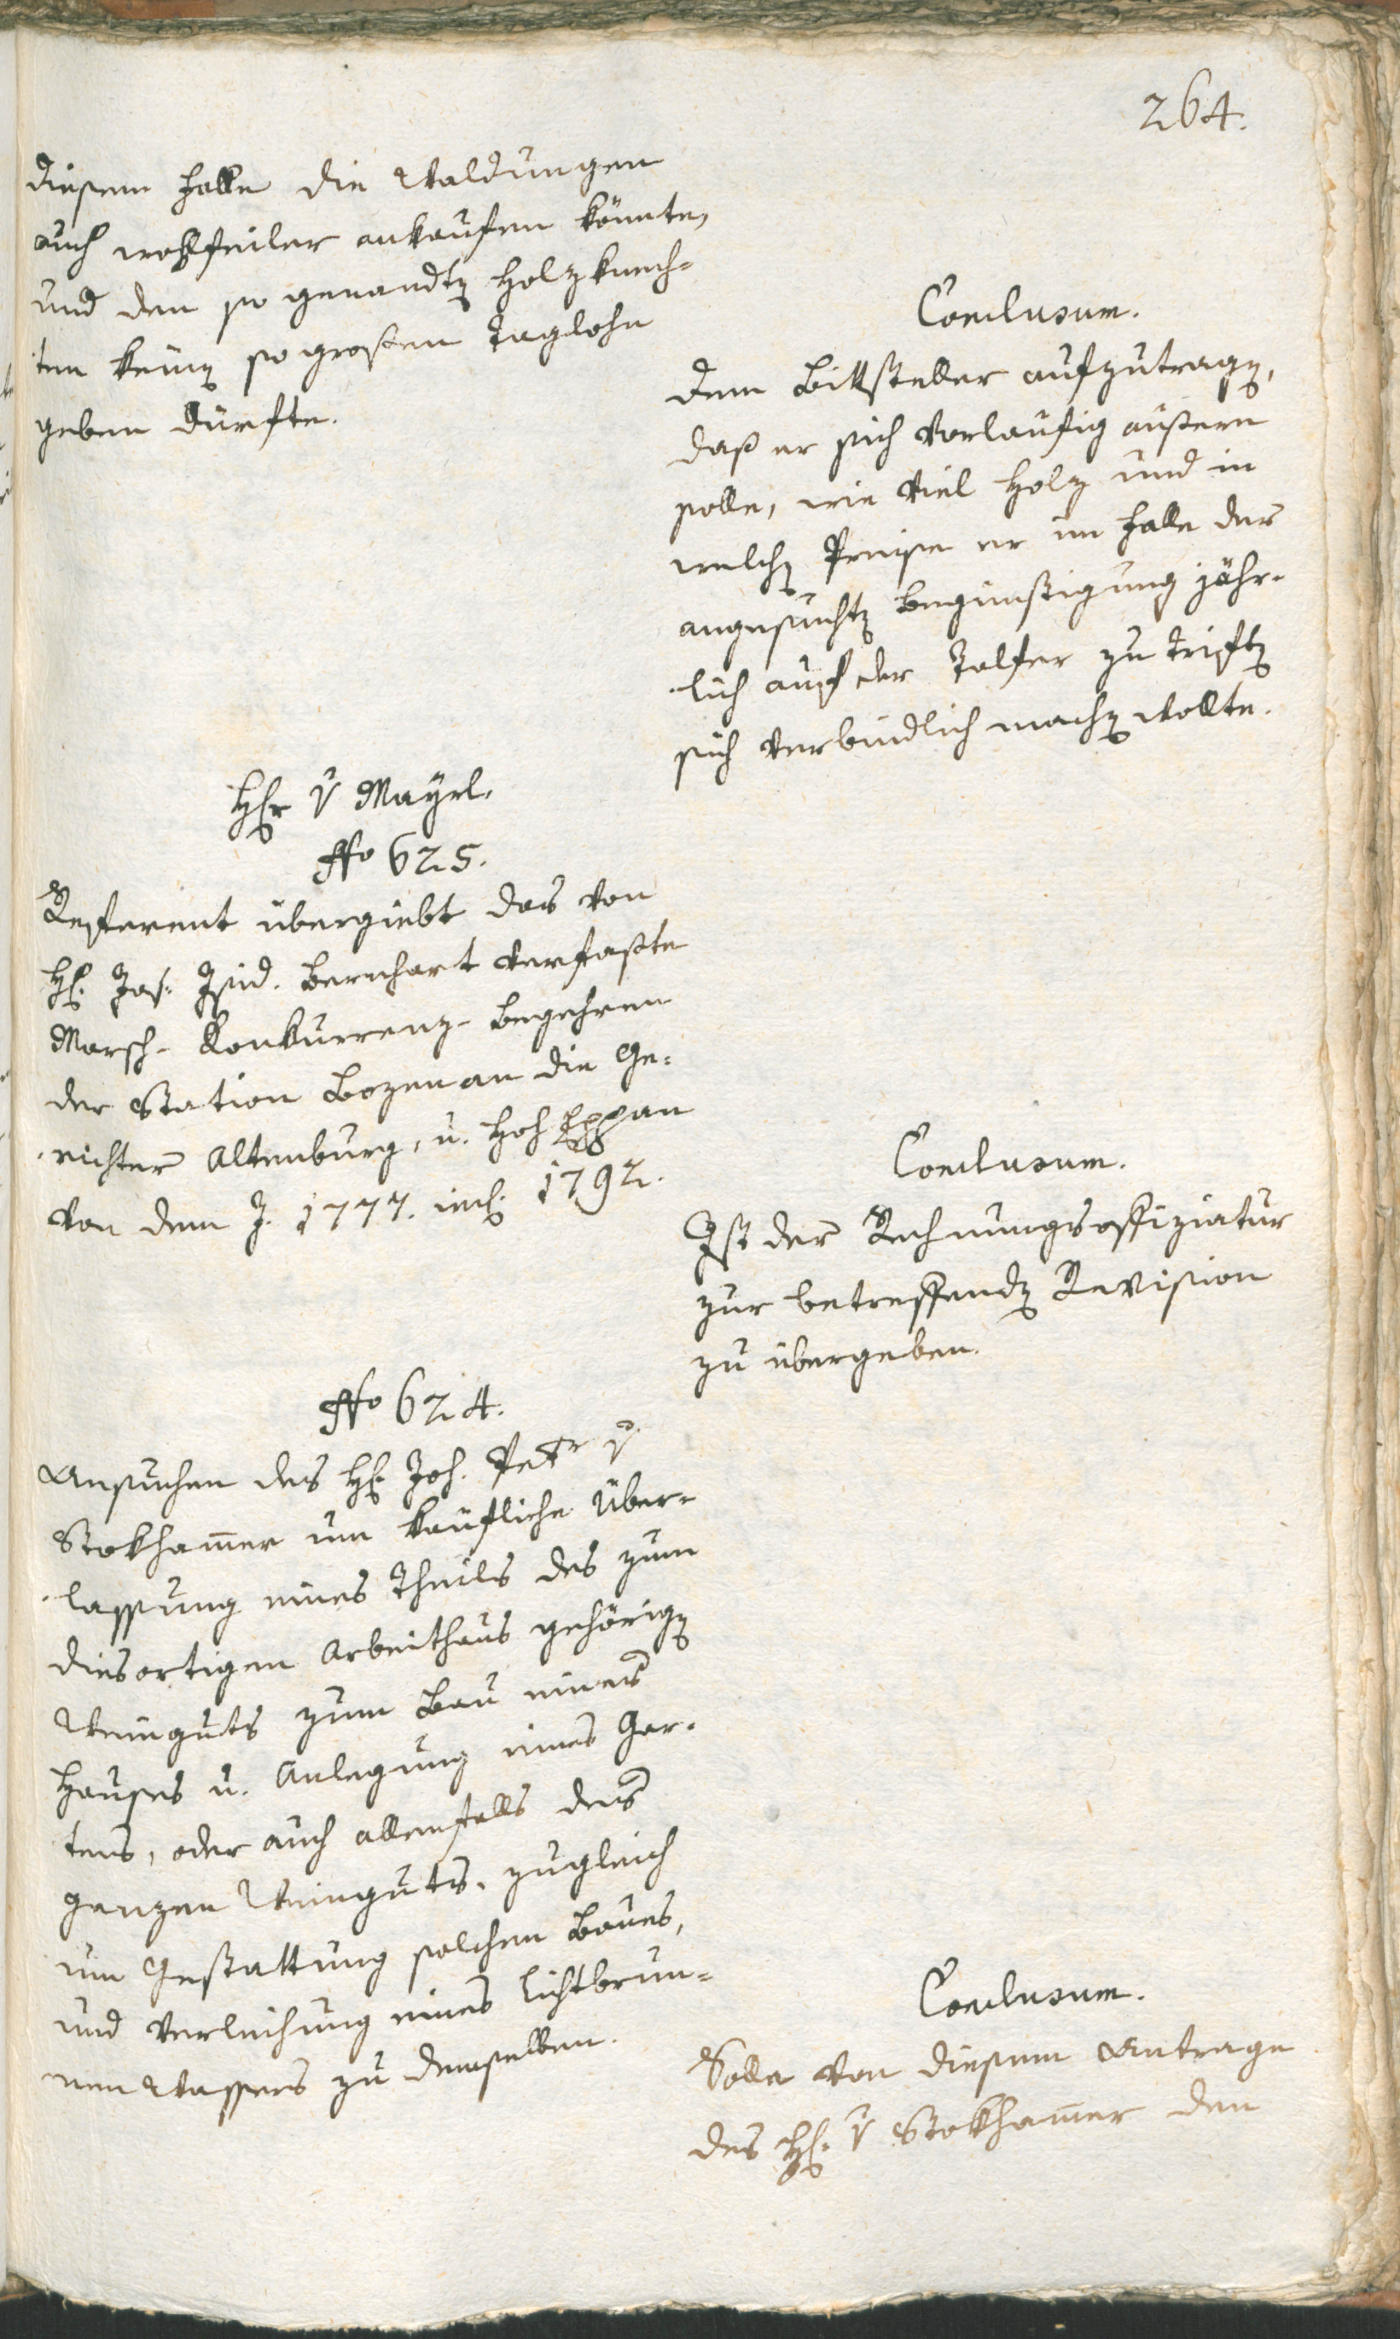 264.
diesem Falle die Waldungen
auch wohlfeiler ankaufen könnte,
und den so genandten Holzknech-
ten keinen so grossen Taglohn
geben dürfte.
Conclusum.
Dem Bittsteller aufzutragen,
daß er sich vorläufig äußern
solle, wie viel Holz und in
welchen Preise er im Falle der
angesuchten Begünstigung jähr-
lich auf der Talfer zu triften
sich verbindlich machen wollte.
Hr v Mayrl.
No 625.
Referent übergiebt das von
H. Jos. Isid. Bernhart verfaßte
Marsch-Konkurrenz-Begehren
der Station Bozen an die Ge-
richter Altenburg, u. Hoh Eppan
von dem J. 1777. incl. 1792.
Conclusum.
Ist der Rechnungsoffiziatur
zur betreffenden Revision
zu übergeben.
No 624.
Ansuchen des H. Joh. Petr v
Stokham̄er um kaüfliche Über-
lassung eines Theils des zum
diesortigen Arbeithaus gehörigen
Weinguts zum Bau eines
Hauses u. Anlegung eines Gar-
tens, oder auch allenfalls des
ganzen Weinguts, zugleich
um Gestattung solchen Baues,
und Verleihung eines Lichtbrun-
nen Wassers zu demselben.
Conclusum.
Solle von diesem Antrage
des H. v Stokham̄er den